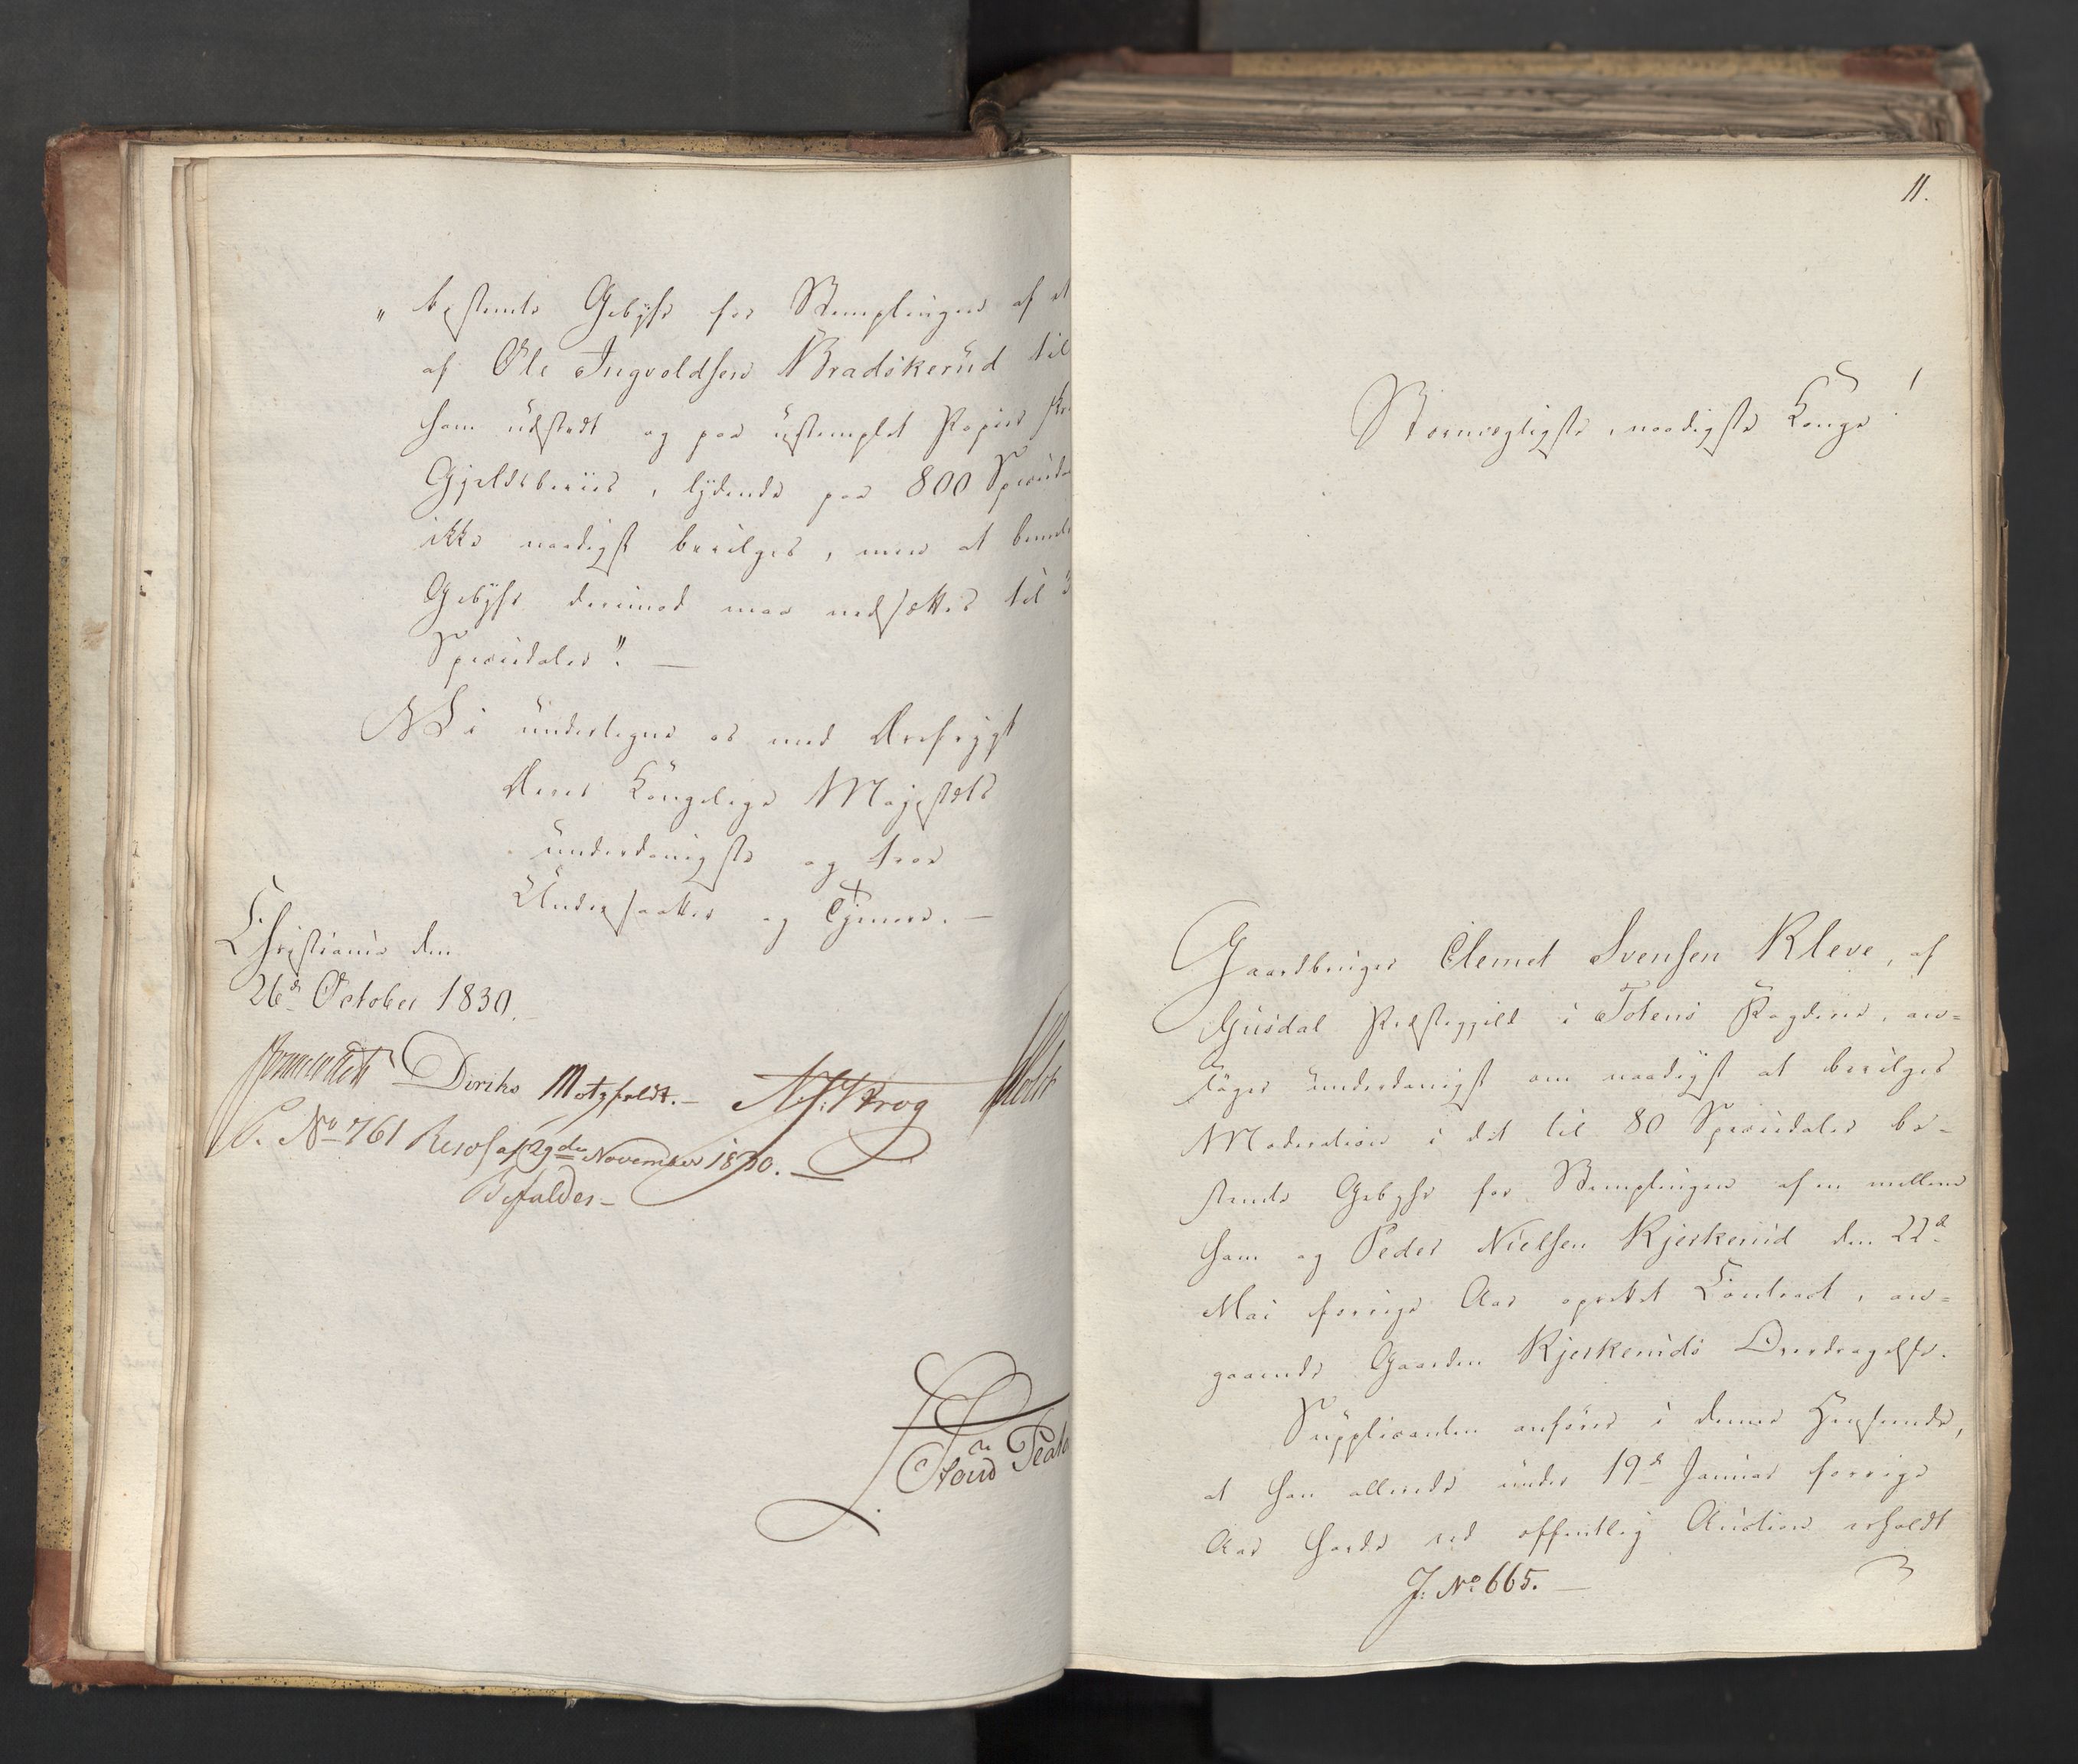 „ bestemte Gebyhr for Stemplingen af et
af Ole Ingvoldsen Bradskerud til
ham udstedt og paa ustemplet Papir
Gjeldsbeviis, lydende paa 800 Speciedaler
ikke naadigst bevilges, men at
Gebyhr derimod maa nedsættes til
Speciedaler". —
Vi underlegne os med Ærefrygt
Deres Kongelige Majestæts
underdanigste og troe
Undersaatter og Tjenere. —
Christiania den
26d October 1830.
Diriks Motzfeldt. — Krog Holst
P. No 761 Resol. af 29de November 1830. —
Bifaldes —
11.
Stormægtigste, naadigste Konge!
Gaardbruger Clemet Svensen Kleve, af
Gusdal Præstegjeld i Totens Fogderie, an=
søger underdanigst om naadigst at bevilges
Moderation i det til 80 Speciedaler be-
stemte Gebyhr for Stemplingen af en mellem
ham og Peder Nielsen Kjerkerud den 22d
Mai forrige Aar oprettet Contract, an=
gaaende Gaarden Kjerkeruds Overdragelse.
Supplicanten anfører i denne Henseende,
at han allerede under 19d Januar forrige
Aar havde ved offentlig Auction erholdt
J. No 665. —